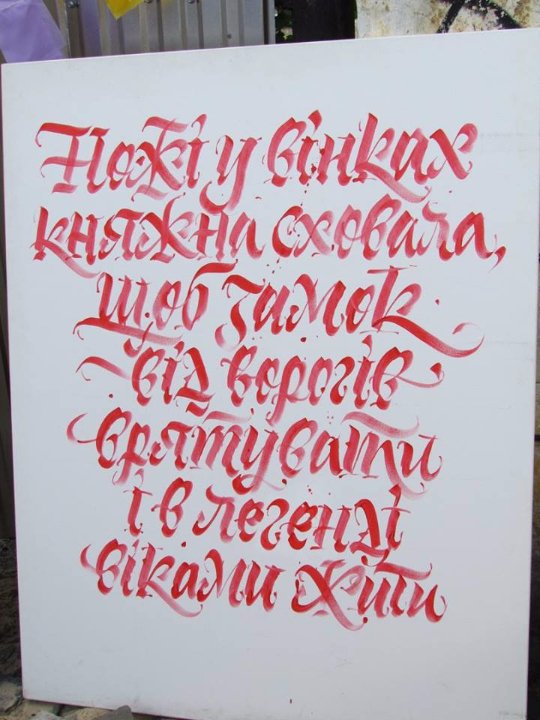 Ножі у вінках
княжна сховала,
щоб замок
від ворогів
врятувати
і в легенді
віками жити